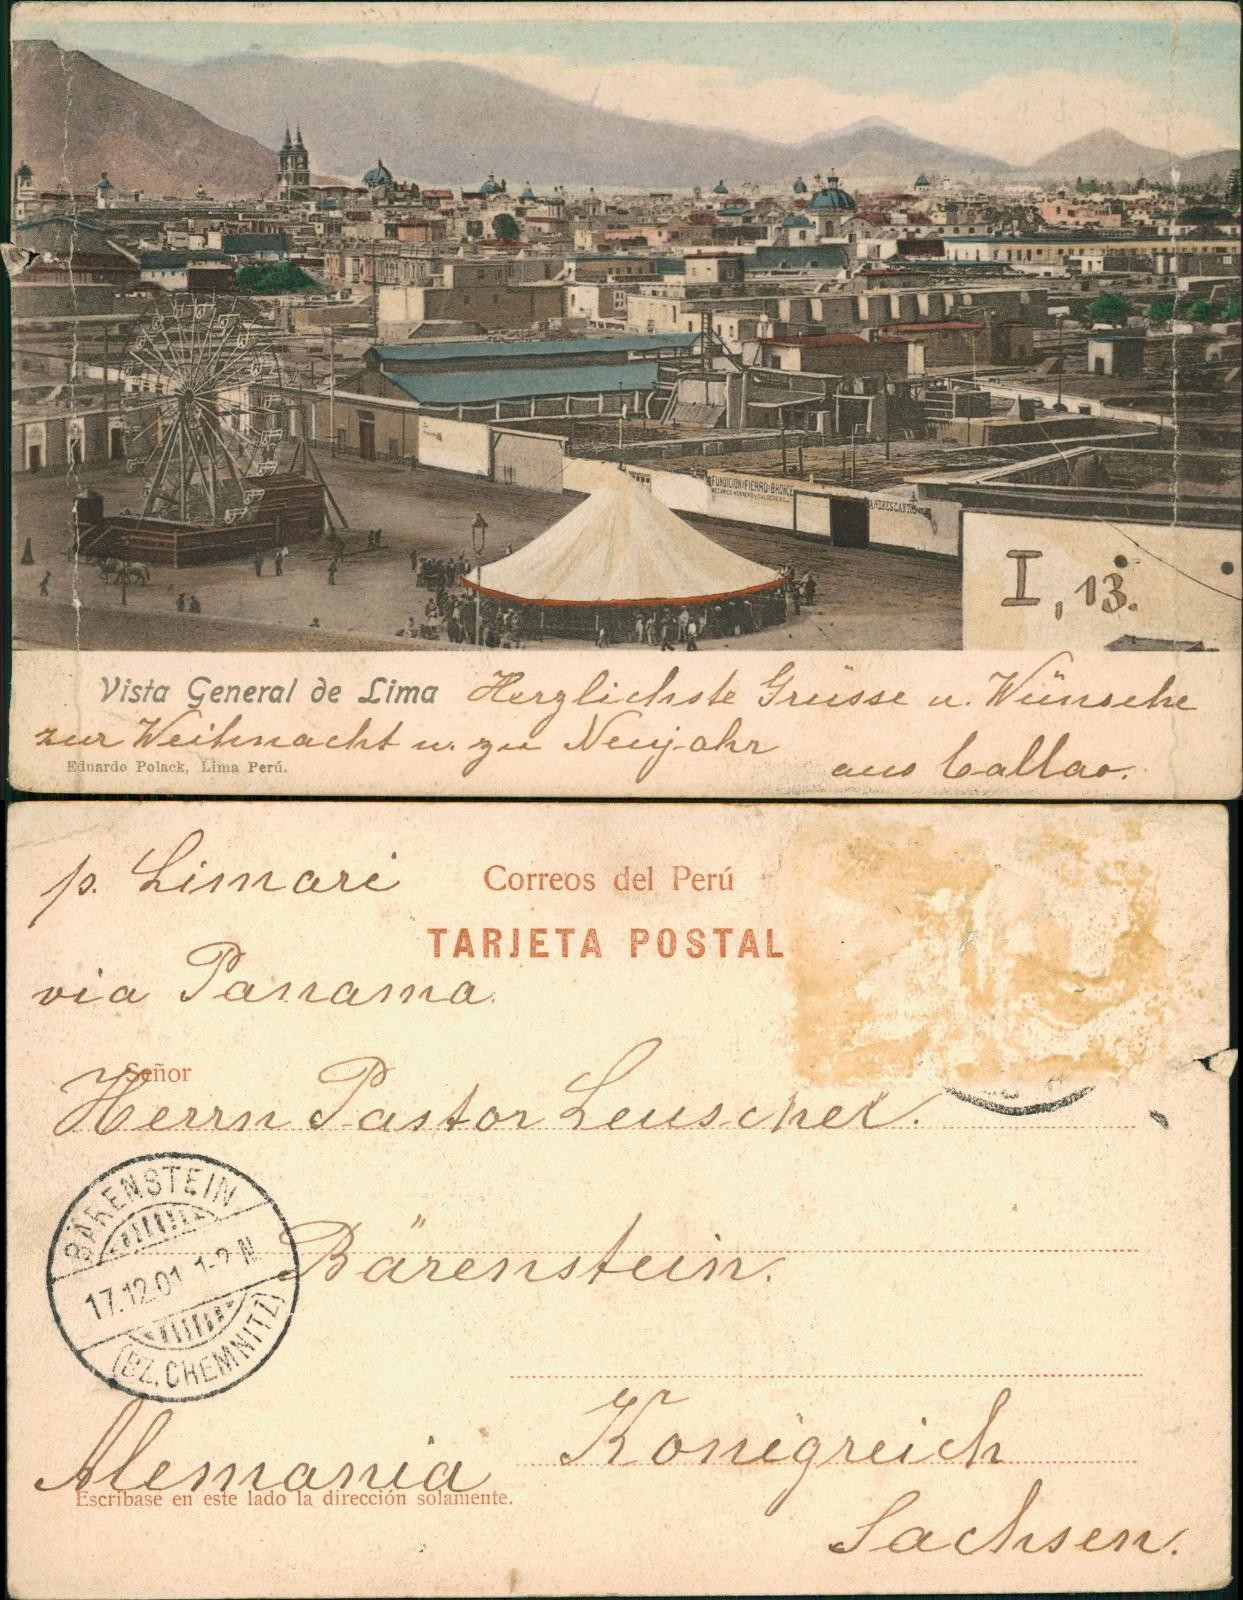 FUNDICION FIERRO Y BRONCE
ANDRES CANTO
I, 13.
Vista General de Lima
Herzlichste Grüsse u. Wünsche
zur Weihnacht u. zu Neujahr
Eduardo Polack, Lima Perú.
aus Callao.
p. Limari
Correos del Perú
TARJETA POSTAL
via Panama.
Señor
Herrn Pastor Leuschel.
BÄRENSTEIN
17.12.01 1-2 N
(BZ. CHEMNITZ)
Bärenstein.
Königreich
Alemania
Escríbase en este lado la dirección solamente.
Sachsen.